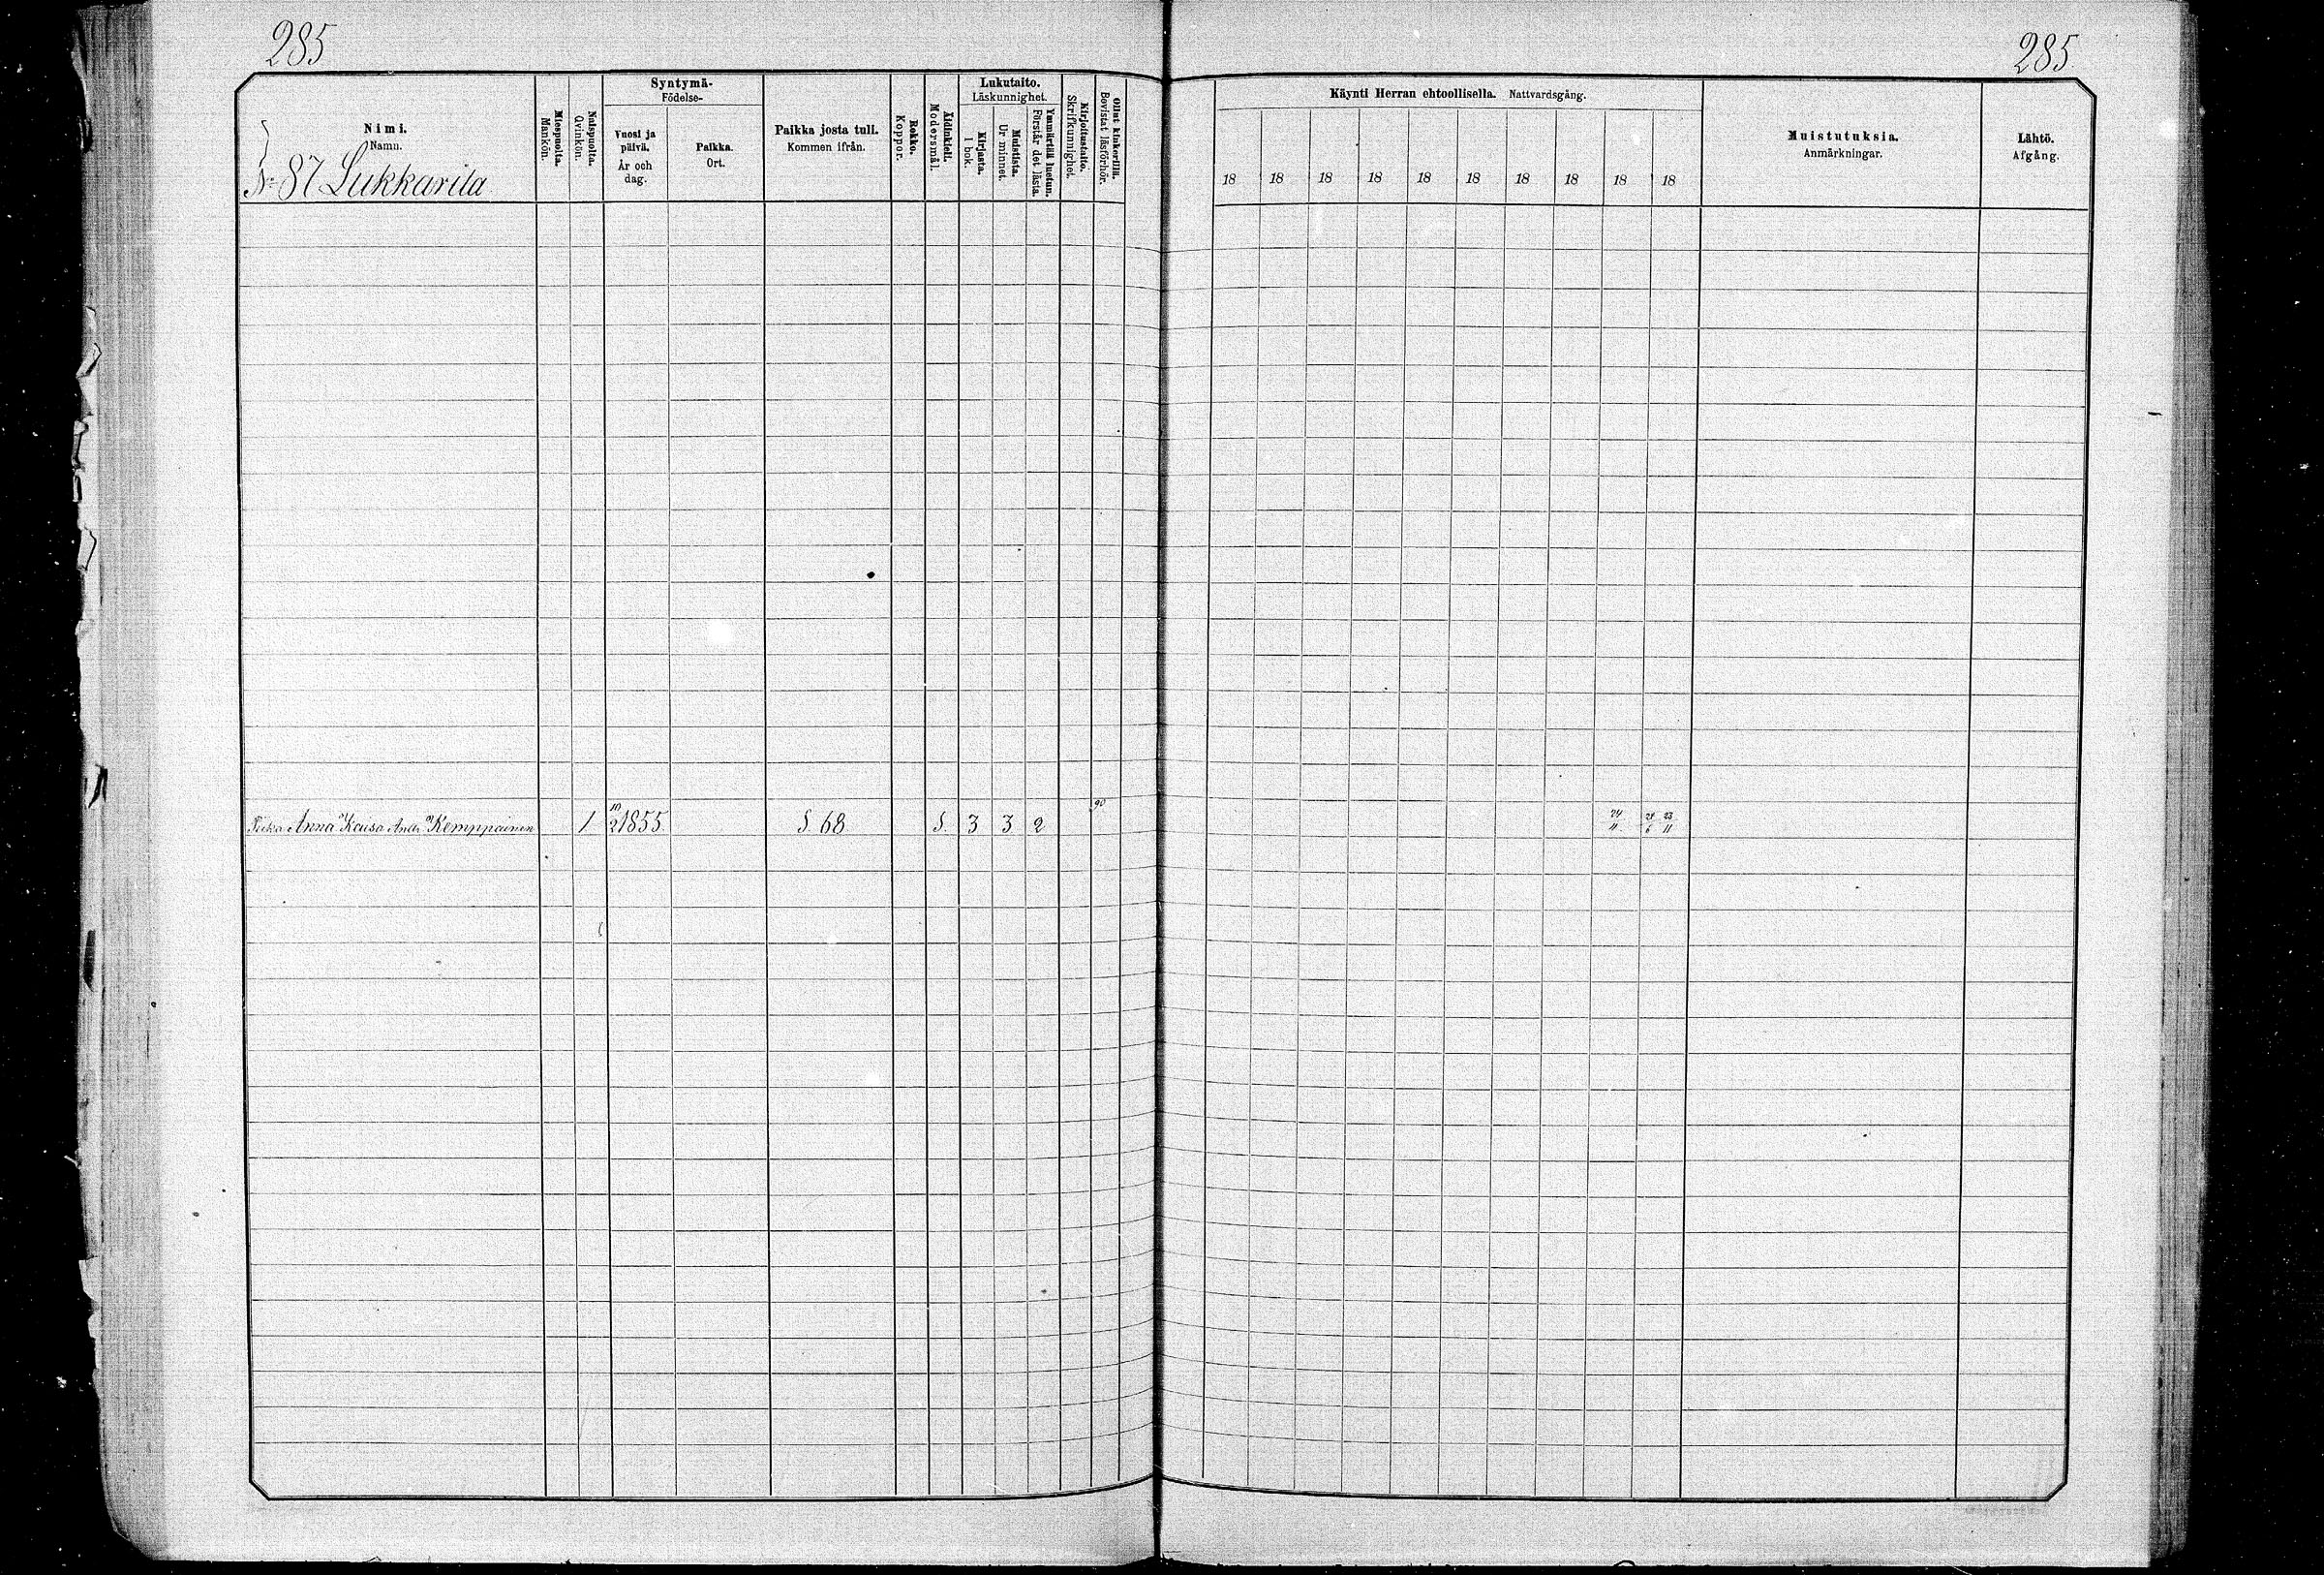 285
285
Nimi.
Namn.
No 87 Lukkarila
Miespuolta.
Mankön.
Naispuolta.
Qvinkön.
Syntymä-
Födelse-
Vuosi ja
päivä.
År och
dag.
Paikka.
Ort.
Paikka josta tuli.
Kommen ifrån.
Rokko.
Koppor.
Äidinkieli.
Modersmål.
Lukutaito.
Läskunnighet.
Kirjasta.
I bok.
Muistista.
Ur minnet.
Ymmärtää luetun.
Förstår det lästa.
Kirjoitustaito.
Skrifkunnighet.
Ollut kinkerillä.
Bevistat läsförhör.
Käynti Herran ehtoollisella. Nattvardsgång.
18 18 18 18 18 18 18 18 18 18
Muistutuksia.
Anmärkningar.
Lähtö.
Afgång.
Piika Anna Kaisa Antt. Kemppainen 1 10/2 1855 S. 68 S. 3 3 2 90 24/11 24/6 23/11